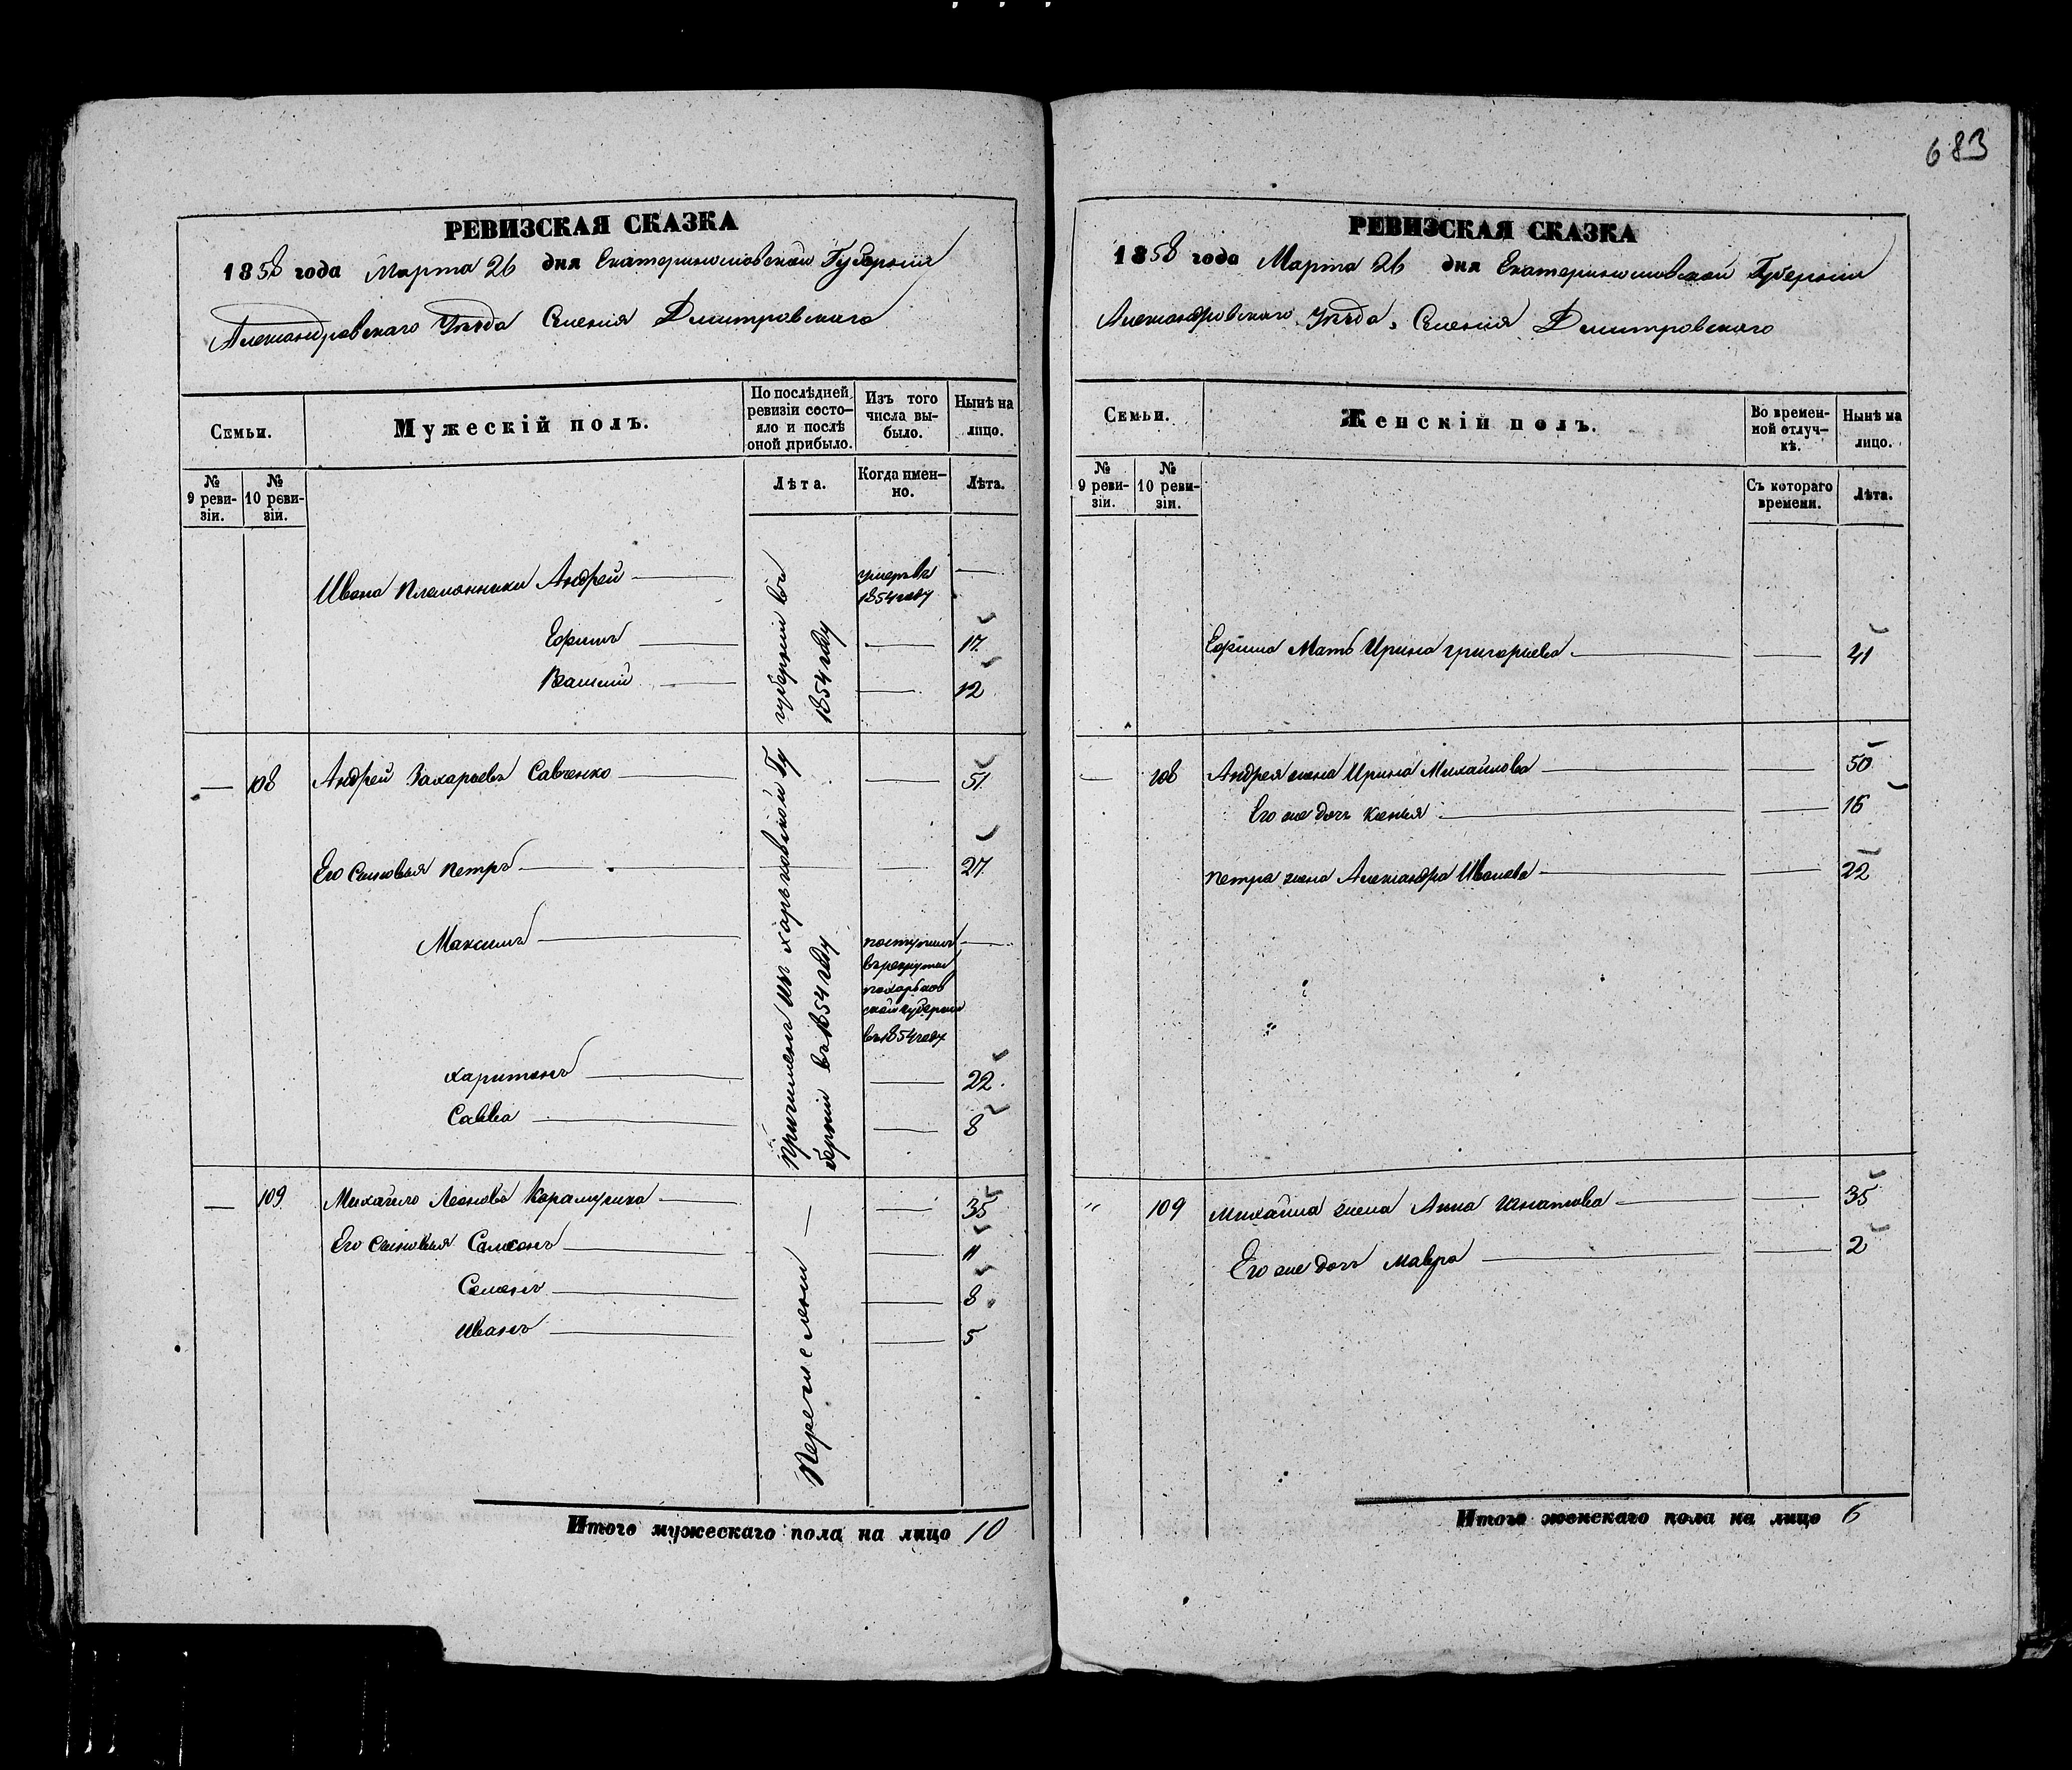 683
РЕВИЗСКАЯ СКАЗКА
1858 года Марта 26 дня Екатеринославской Губерніи
Александровскаго Уѣзда Селенія Дмитровскаго
Семьи.
Мужескій полъ.
По послѣдней ревизіи состо-
яло и послѣ оной прибыло.
Изъ того числа вы-
было.
Нынѣ на лицо.
№ 9 реви-
зіи.
№ 10 реви-
зіи.
Лѣта.
Когда имен-
но.
Лѣта.
Ивана племянники Андрей — умеръ въ —
1854 году
Ефимъ — — 17.
Василий — — 12
губерніи въ
1854 году
— 108 Андрей Захарьевъ Савченко — — 51.
Его сыновья Петръ — — 27.
Максимъ — поступилъ —
въ рекруты
по харьков
ской губерніи
въ 1854 году
Харитонъ — — 22.
Савва — — 8
Причисленъ изъ харьковской Гу
берніи въ 1854 году
— 109 Михайло Леоновъ — 35
Его сыновья Самсонъ — — 11
Семенъ — — 8
Иванъ — — 5
Перечислены —
Итого мужескаго пола на лицо 10
РЕВИЗСКАЯ СКАЗКА
1858 года Марта 26 дня Екатеринославской Губерніи
Александровскаго Уѣзда, Селенія Дмитровскаго
Семьи.
Женскій полъ.
Во времен-
ной отлуч-
кѣ.
Нынѣ на лицо.
№ 9 реви-
зіи.
№ 10 реви-
зіи.
Съ котораго времени.
Лѣта.
Ефима Мать Ирина григорьева — — 41
— 108 Андрея жена Ирина Михайлова — — 50
Его же дочь Ксенья — — 16
Петра жена Александра Иванова — — 22
" 109 Михайла жена Анна Игнатова — — 35
Его же дочь Мавра — — 2
Итого женскаго пола на лицо 6